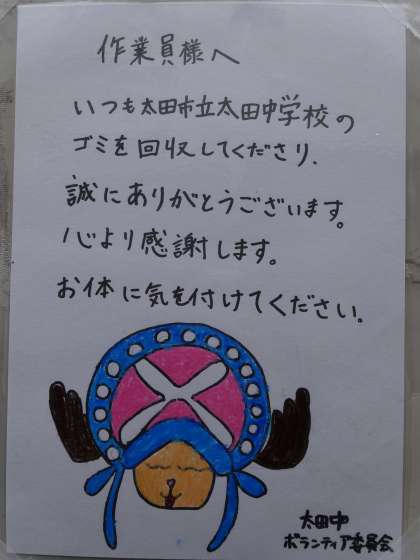 作業員様へ
いつも太田市立太田中学校の
ゴミを回収してくださり、
誠にありがとうございます。
心より感謝します。
お体に気を付けてください。
太田中
ボランティア委員会